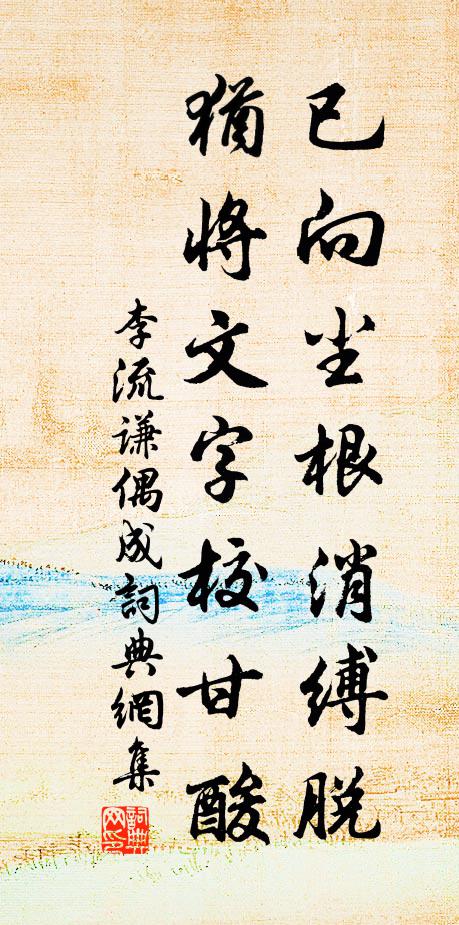 已向尘根消缚脱
犹将文字校甘酸
李流谦偶成詞典網集
詞典网印